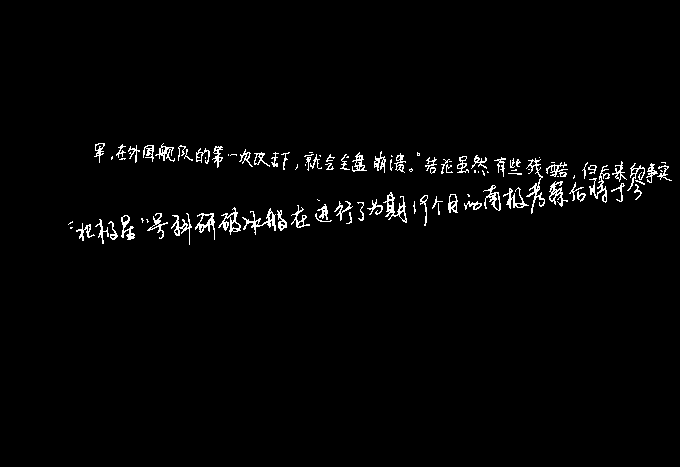 军，在外国舰队的第一次攻击下，就会全盘崩溃。"结论虽然有些残酷，但后来的事实
"北极星"号科研破冰船在进行了为期19个月的南极考察后将于今